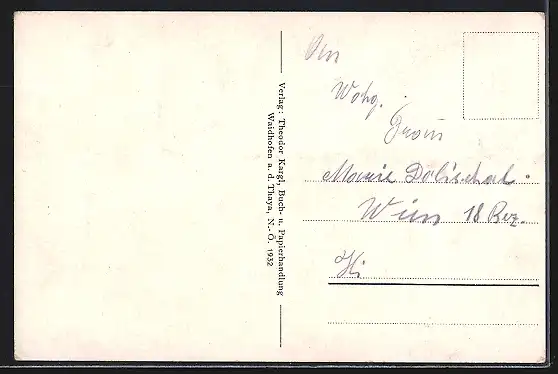 Verlag: Theodor Kargl, Buch- u. Papierhandlung
Waidhofen a. d. Thaya, N.-Ö. 1932
An
Wohg.
Frau
Marie Dolischal.
Wien 18 Bez.